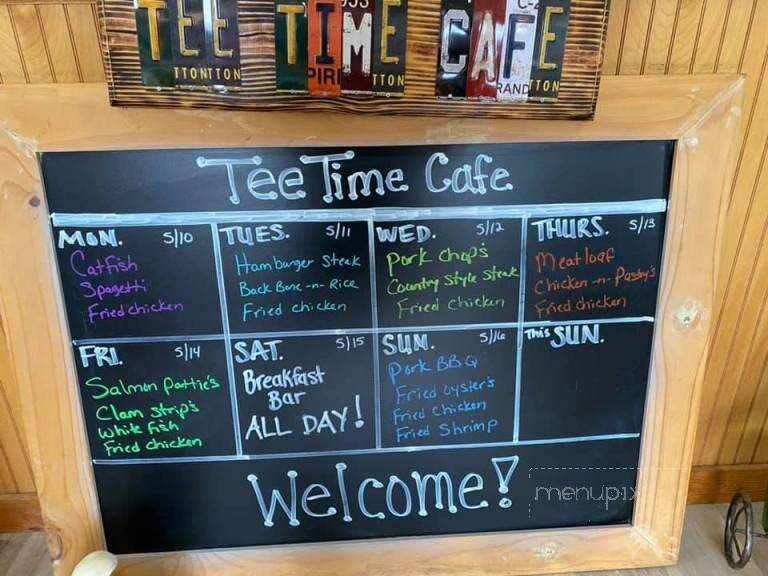 TEE TIME CAFE
TTONTTON
PIRI
TTON
RAND
TTON
Tee Time Cafe
MON. 5/10
Catfish
Spagetti
Fried chicken
TUES. 5/11
Hamburger Steak
Back Bone -n- Rice
Fried chicken
WED. 5/12
Pork chop's
Country Style Steak
Fried Chicken
THURS. 5/13
Meatloaf
Chicken -n- Pastry's
Fried chicken
FRI. 5/14
Salmon Pattie's
Clam strip's
White fish
Fried chicken
SAT. 5/15
Breakfast
Bar
ALL DAY!
SUN. 5/16
Pork BBQ
Fried oyster's
Fried chicken
Fried Shrimp
This SUN.
Welcome!
menupix